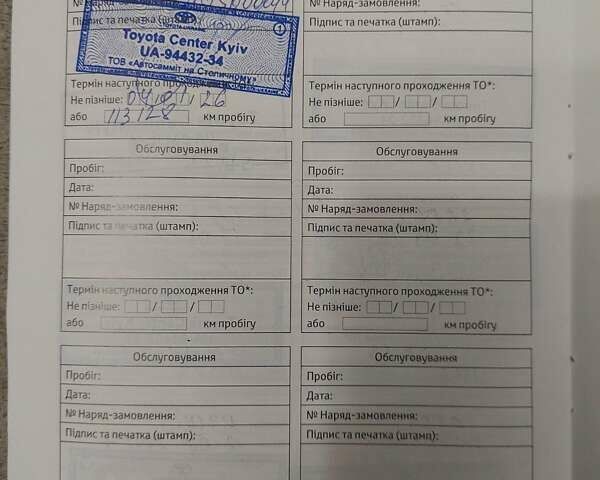 № Наряд-замовлення:
№ Наряд-замовлення:
Підпис та печатка (штамп):
Підпис та печатка (штамп):
Toyota Center Kyiv
UA-94432-34
ТОВ «Автосамміт на Столичному»
Термін наступного проходження ТО*:
Не пізніше: 04 / 01 / 26
або 113128 км пробігу
Термін наступного проходження ТО*:
Не пізніше: / /
або км пробігу
Обслуговування
Пробіг:
Дата:
№ Наряд-замовлення:
Підпис та печатка (штамп):
Термін наступного проходження ТО*:
Не пізніше: / /
або км пробігу
Обслуговування
Пробіг:
Дата:
№ Наряд-замовлення:
Підпис та печатка (штамп):
Термін наступного проходження ТО*:
Не пізніше: / /
або км пробігу
Обслуговування
Пробіг:
Дата:
№ Наряд-замовлення:
Підпис та печатка (штамп):
Обслуговування
Пробіг:
Дата:
№ Наряд-замовлення:
Підпис та печатка (штамп):